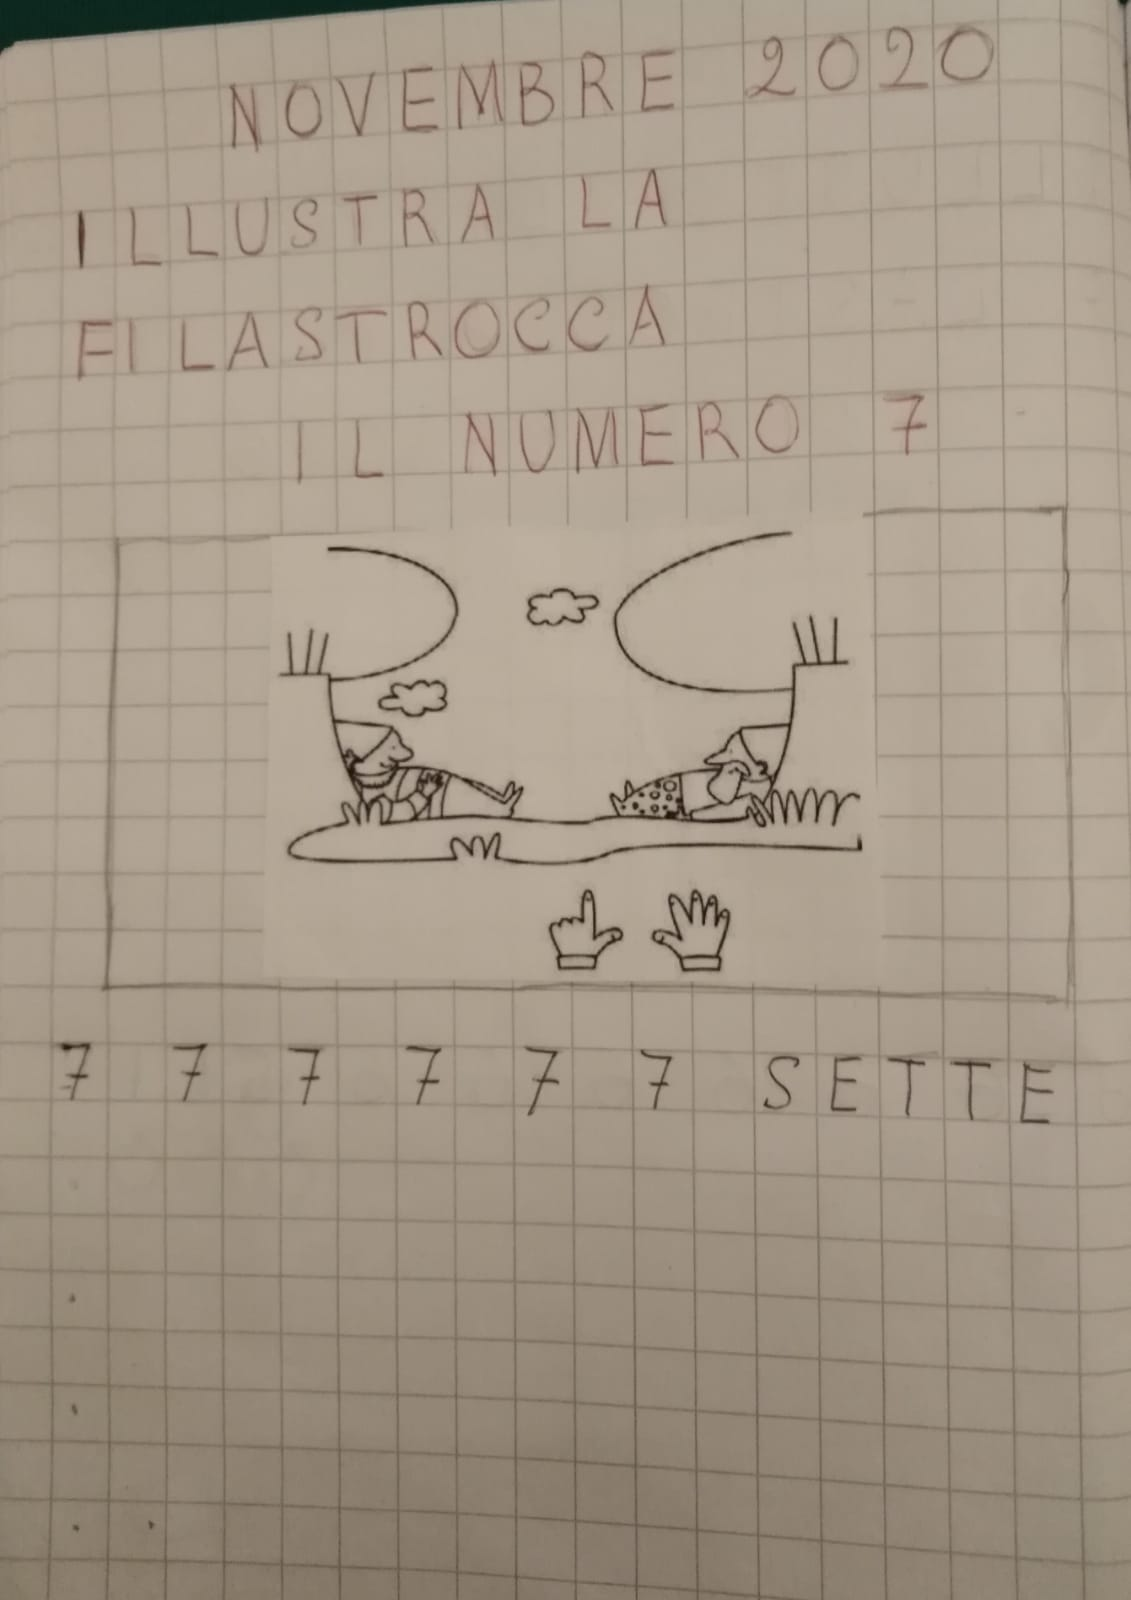 NOVEMBRE 2020
ILLUSTRA LA
FILASTROCCA
IL NUMERO 7
7 7 7 7 7 7 SETTE